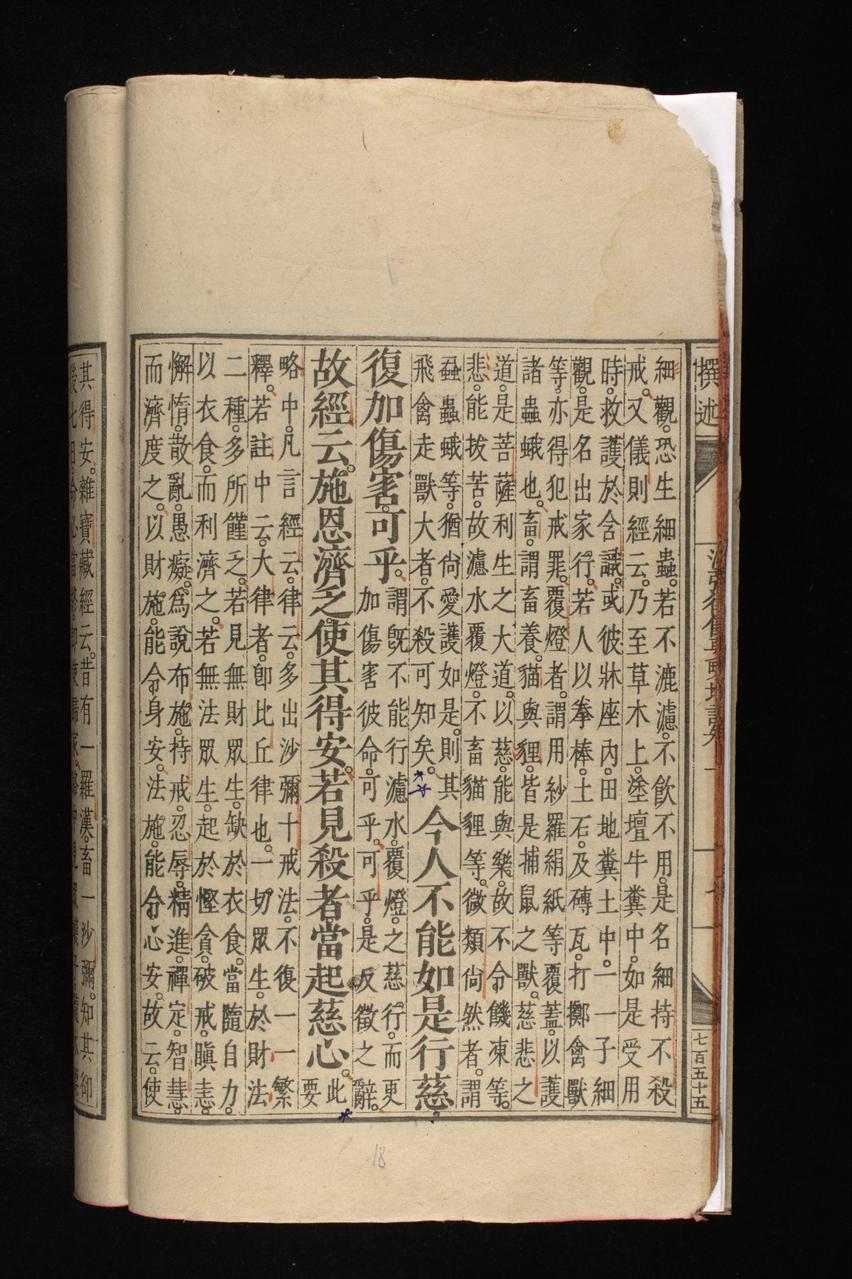 撰述
七百五十五
細觀。恐生細蟲。若不漉濾。不飲不用。是名細持不殺
戒。又儀則經云。乃至草木上。塗壇牛糞中。如是受用
時。救護於含識。或彼牀座內。田地糞土中。一一子細
觀。是名出家行。若人以拳棒。土石。及磚瓦。打擲禽獸
等。亦得犯戒罪。覆燈者。謂用紗羅絹紙等覆蓋。以護
諸蟲蛾也。畜。謂畜養。貓與貍。皆是捕鼠之獸。慈悲之
道。是菩薩利生之大道。以慈能與樂。故不令饑凍等。
悲。能拔苦。故濾水覆燈。不畜貓貍等。微類尙然者。謂
蝨蟲蛾等。猶尙愛護如是。則其
飛禽走獸大者。不殺可知矣。
今人不能如是行慈。
復加傷害。可乎。
謂旣不能行濾水。覆燈。之慈行。而更
加傷害彼命。可乎。可乎。是反徵之辭。
故經云。施恩濟乏。使其得安。若見殺者。當起慈心。
此要
略中。凡言經云。律云。多出沙彌十戒法。不復一一繁
釋。若註中云。大律者。卽比丘律也。一切眾生。於財法
二種。多所僅乏。若見無財眾生。缺於衣食。當隨自力。
以衣食。而利濟之。若無法眾生。起於慳貪。破戒。瞋恚。
懈惰。散亂。愚癡。爲說布施。持戒。忍辱。精進。禪定。智慧。
而濟度之。以財施。能令身安。法施。能令心安。故云。使
18
其得安。雜寶藏經云。昔有一羅漢。畜一沙彌。知其卻